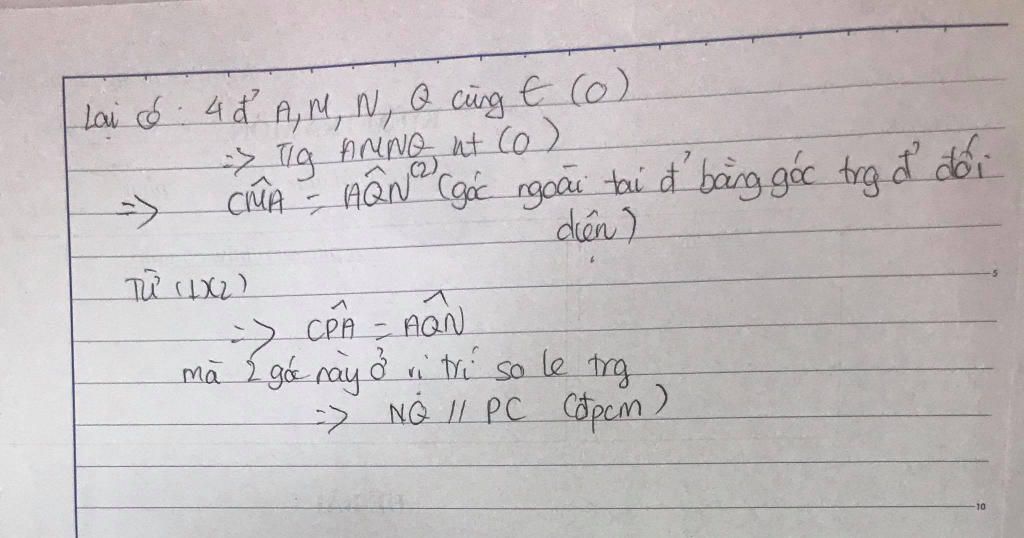 Lại có : 4 đ' A, M, N, Q cùng ∈ (O)
=> T/g AMNQ nt (O)
=> CM̂A = AQ̂N (2) (góc ngoài tại đ' bằng góc trg đ' đối
diện)
Từ (1)(2)
=> CP̂A = AQ̂N
mà 2 góc này ở vị trí so le trg
=> NQ // PC (đpcm)
5
10